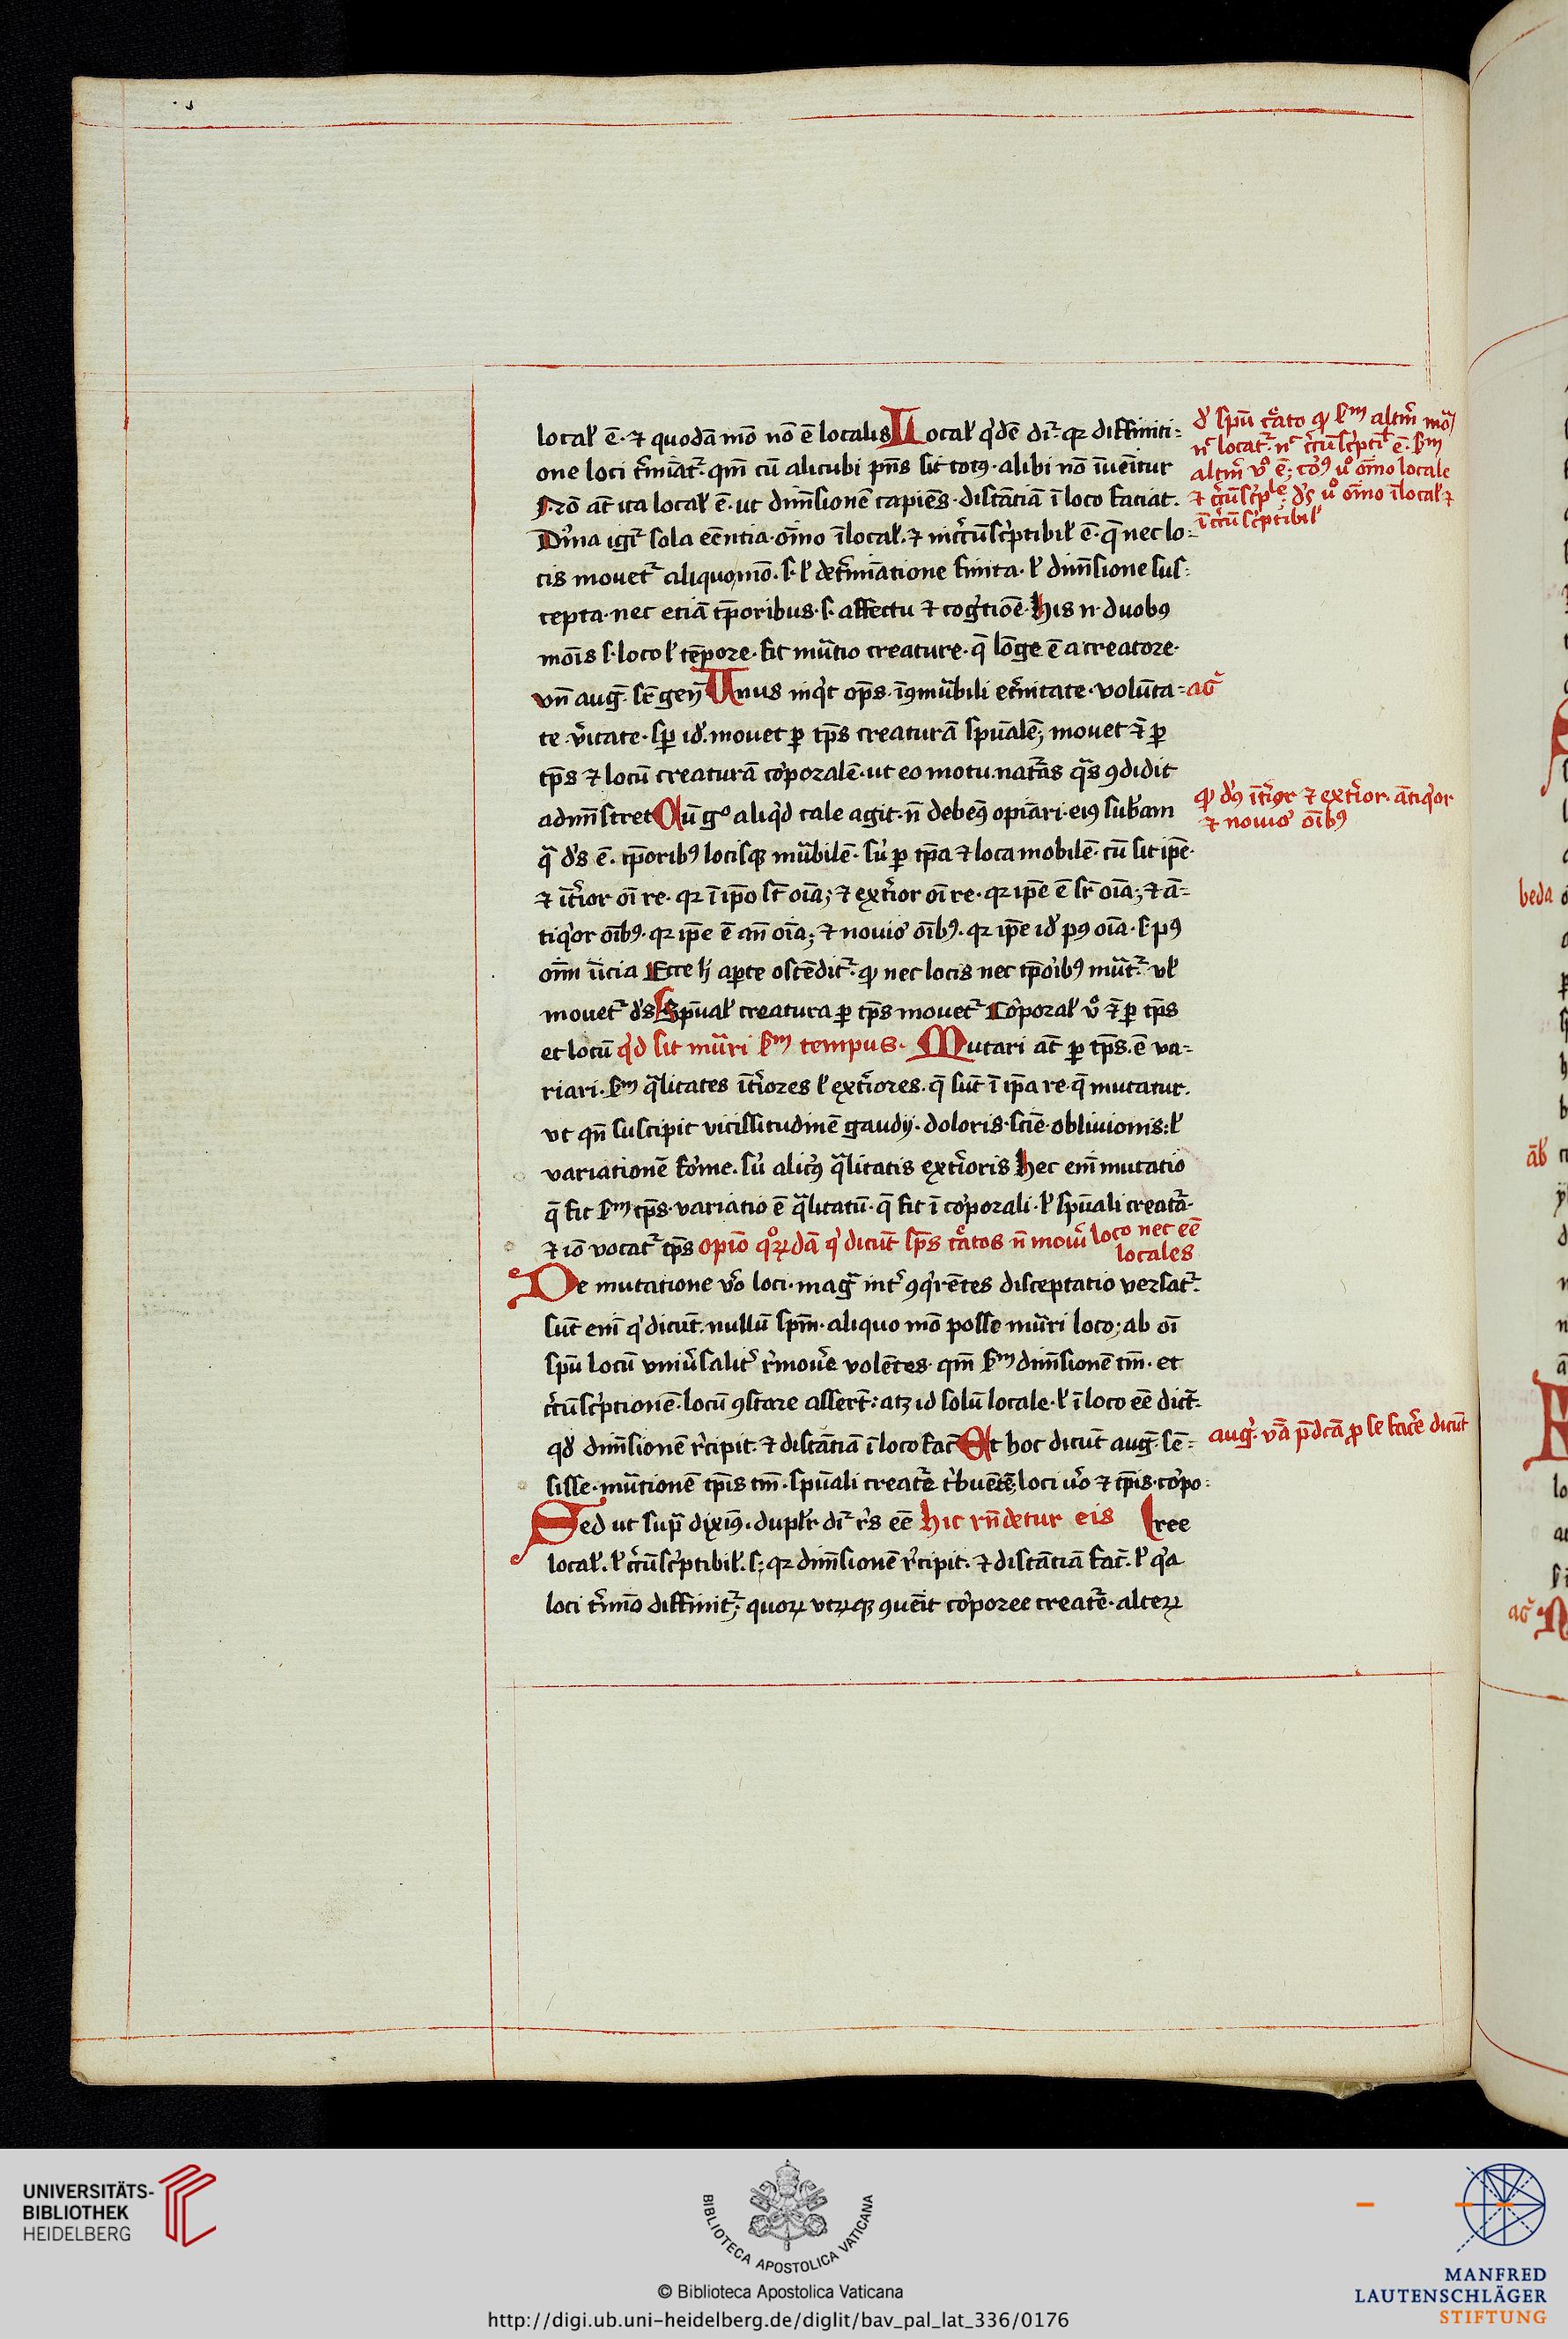 local̓ ē· ⁊ quodā mō nō ē localis Local̓ q'dē dr̄· qꝛ diffiniti-
one loci t̓miāt᷑· qm̄ cū alicubi p̄ns sit totꝰ· alibi nō īuēitur
s· nō aūt ita local̓ ē· ut dim̄sionē capiēs· distātiā ī loco faciat·
Diīna igr̄ sola eēntia· oīno īlocal̓· ⁊ incircūsc̓ptibil̓ ē· q̄ nec lo-
cis mouet᷑ aliquo mō· s· l̓ det̓miātione finita· l̓ dim̄sione sus-
cepta· nec etiā tp̄oribus· s· affectu ⁊ cog̓tiōe· his n· duobꝰ
mōis s· loco l̓ tēpore· fit mūtio creature· q̄ lōge ē a creatore·
vn̄ auḡ· sr̄ gen̄ Unus inq̓t op̄s· īꝯmūbili et̓nitate· volūta-
te v̓itate· sp̄ id̓· mouet ꝑ tp̄s creaturā spūalē; mouet ē ꝑ
tp̄s ⁊ locū creaturā corporalē· ut eo motu· nat̓as q̄s ꝯdidit
admīstret Cū gº aliq̓d tale agit· n̄ debeꝰ opīari· eiꝰ sub̓am
q̄ d̓s ē· tp̄oribꝰ locisqꝫ mūbilē· siu̓ ꝑ tp̄a ⁊ loca mobilē· cū sit ip̄e·
⁊ īt̓ior oī re· qꝛ ī ip̄o st̄ oīa; ⁊ ext̓ior oī re· qꝛ ip̄e ē sr̄ oīa; ⁊ ā-
tiq̓or oībꝰ· qꝛ ip̄e ē an̄ oīa; ⁊ nouio̓ oībꝰ· qꝛ ip̄e id̓ pꝰ oīa· s· pꝰ
oīm īicia Ecce h̓ aperte ostēdit᷑· ꝙ nec locis nec tp̄oribꝰ mūt᷑· vl̓
mouet᷑ d̓s Sp̄ual̓ creatura ꝑ tp̄s mouet᷑ Corporal̓ v̊ ē ꝑ tp̄s
et locū q̓d sit mūri sᵐ tempus· Mutari aūt ꝑ tp̄s· ē va-
riari· sᵐ q̄litates īt̓iores l̓ ext̓iores· q̄ sūt ī ip̄a re· q̄ mutatur·
vt qn̄ suscipit vicissitudinē gaudij· doloris· sciē· obliuionis; l̓
variationē forme· siu̓ alicꝰ q̄litatis ext̓ioris hec enī mutatio
q̄ fit sᵐ tp̄s· variatio ē q̄litatū· q̄ fit ī corporali· l̓ spūali creat̓a·
⁊ iō vocat᷑ tp̄s opīo quoꝝdā q̓ dicūt sp̄s c̊atos n̄ moui̓ loco nec eē
locales
De mutatione v̊o loci· mag̓ int̓ ꝯq̓rētes disceptatio versat᷑·
sūt enī q̓ dicūt· nullū sp̄m· aliquo mō posse mūri loco; ab oī
spū locū vniu̓salit᷑ r̓mou̓e volētes· qm̄ sᵐ dim̄sionē tm̄· et
circūsc̓ptionē· locū ꝯstare assert̄; atqꝫ id solū locale· l̓ ī loco eē dict̄·
qd̓ dim̄sionē r̓cipit· ⁊ distātiā ī loco fac̄ Et hoc dicūt aug̓· sē-
sisse· mūtionē tp̄is tm̄· spūali creat̓e t̓buētē; loci v̊o ⁊ tp̄is· corpo-
Sed ut sup̄ diximꝰ· dupl̓r dr̄ r̓s eē hic rn̄detur eis ree
local̓· l̓ circūsc̓ptibil̓· s; qꝛ dim̄sionē r̓cipit· ⁊ distātiā fac̄· l̓ q̓a
loci t̓mīo diffinit᷑; quoꝝ vtrūqꝫ ꝯuēit corporee creat̓e· alteꝝ
d̓ spū c̊ato ꝙ sᵐ altm̄ mo̅
n̄ locat᷑· n̄ circūsc̓ptī ē· sᵐ
altm̄ v̊ ē; corpꝰ v̊ oīno locale
⁊ circūsc̓ple; d̓s v̊ oīno īlocal̓ ⁊
īcircūsc̓ptibil̓
ag̓
ꝙ d̓s īt̓ior ⁊ ext̓ior· ātiq̓or
⁊ nouio̓ oībꝰ
aug̓· v̄a p̄dcā ꝓ se fac̓e dicūt
beda
āb̓
ag̓
UNIVERSITÄTS-
BIBLIOTHEK
HEIDELBERG
BIBLIOTECA APOSTOLICA VATICANA
© Biblioteca Apostolica Vaticana
http://digi.ub.uni-heidelberg.de/diglit/bav_pal_lat_336/0176
MANFRED
LAUTENSCHLÄGER
STIFTUNG